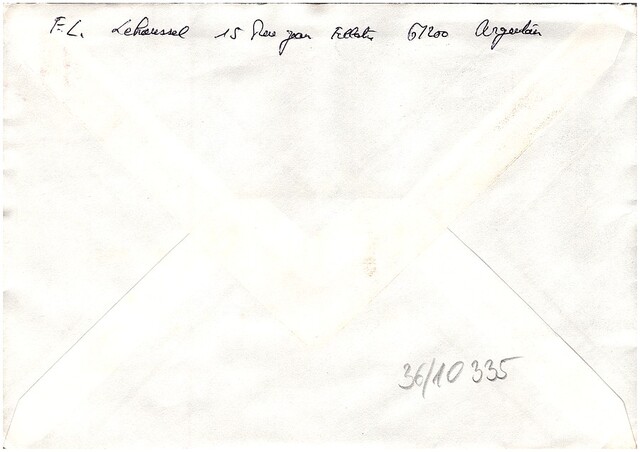 F.L. Lehoussel 15 Rue jean 61200 Argentan
36/10 335